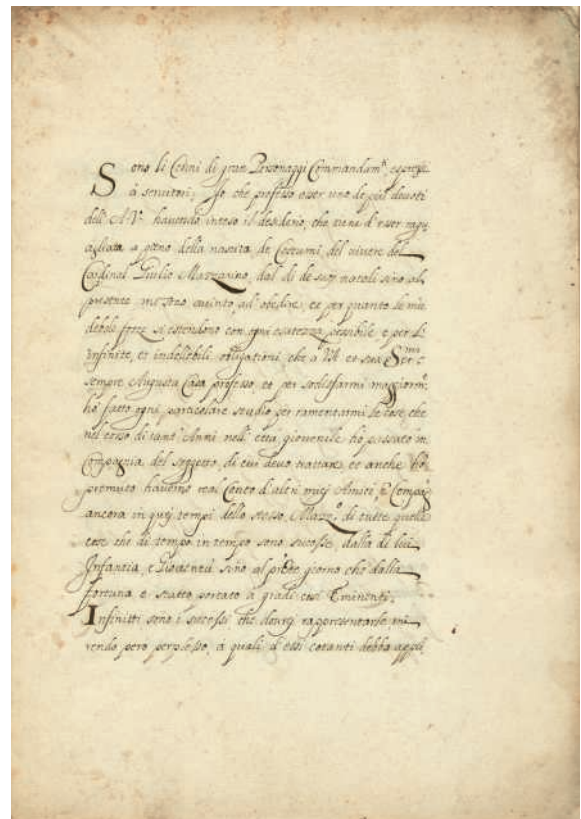 Sono li Cenni di gran Personaggi Commandam.ti espressi
à servitori; Io che professo esser uno de più devoti
dell' A. V. havendo inteso il desiderio, che tiene d'esser ragu
agliata a pieno della nascita de Costumi, del vivere del
Cardinal Giulio Mazzarino, dal di de suoj natali sino al
presente mi sono accinto, ad obedire, et per quanto le mie
debole forze si estendono con ogni esatezza possibile e per l'
infinite, et indellebili obligationi, che a V.A. et sua Ser.ma e
sempre Augusta Casa professo, et per sodisfarmi maggiorm.te
hò fatto ogni particolare studio per ramentarmi le cose che
nel corso di tant' Anni nell' età giovenile hò passato in
Compagnia del soggetto, di cui devo trattare, et anche hò
premuto haverne real Conto d'altri miej Amici, e Compagi
ancora in quej tempi dello stesso Mazz.o di tutte quelle
cose che di tempo in tempo sono successe dalla di lui
Infantia, e Gioventù sino al pnte giorno che dalla
fortuna è stato portato a gradi così Eminenti.
Infinitti sono i successi che dourej rappresentarle mi
rendo però perplesso, à quali d'essi cotanti debba appli,